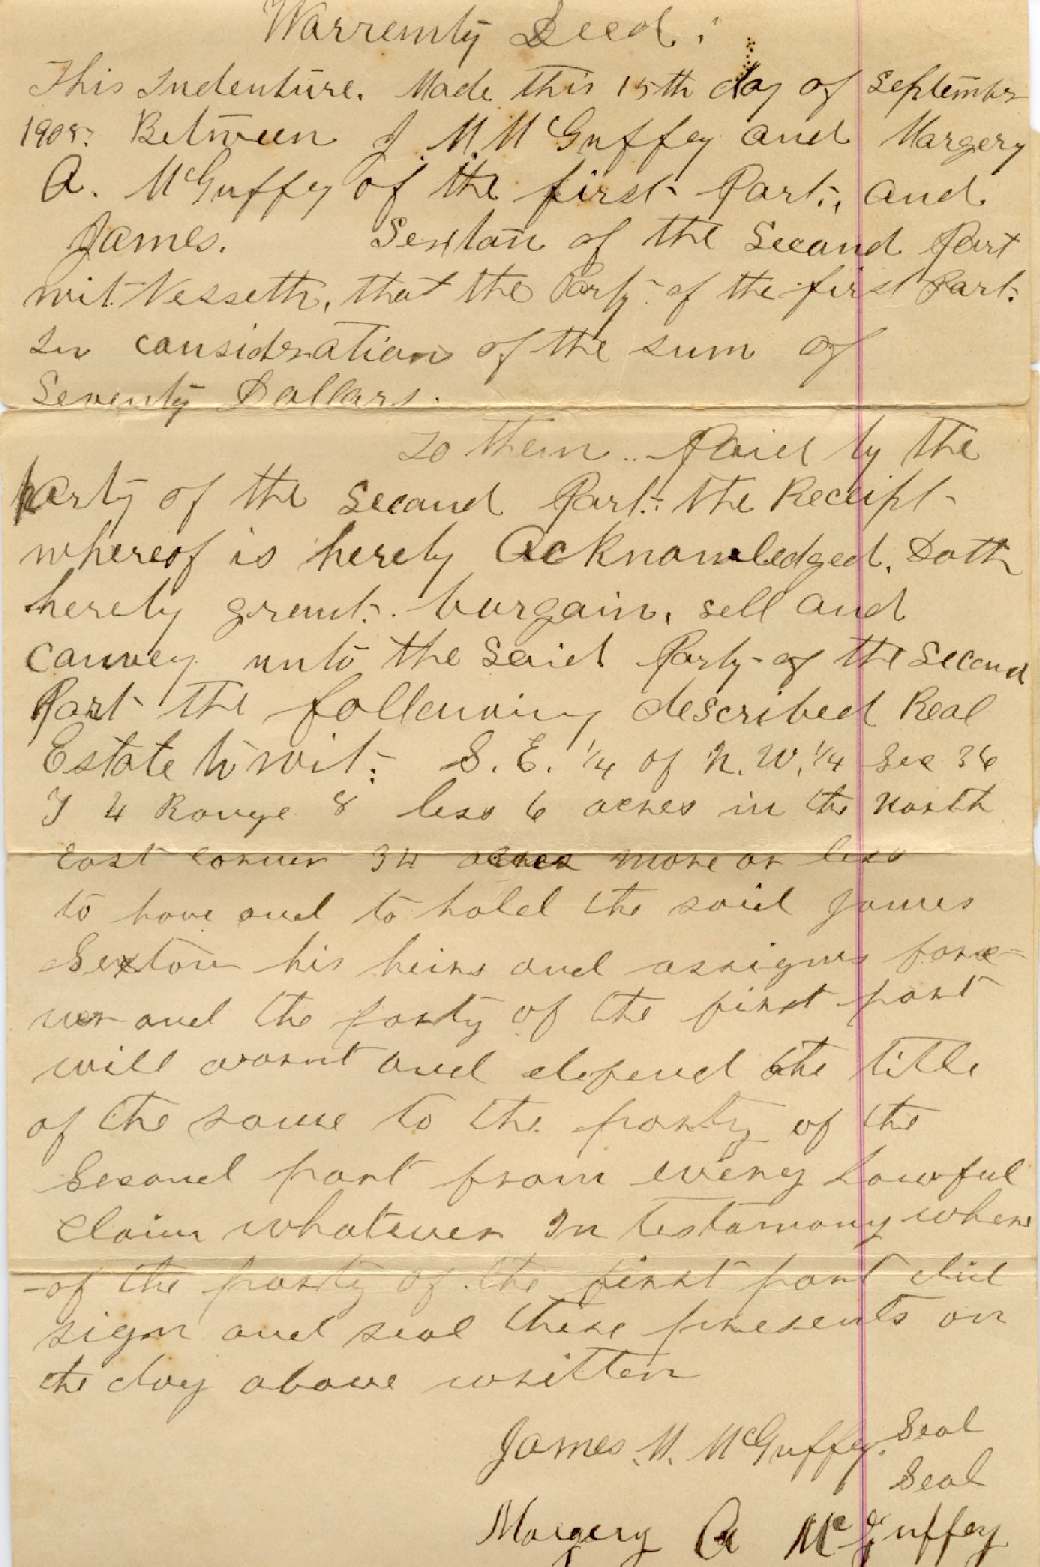 Warrenty Deed:
This Indenture. Made this 15th day of September
1908: Between J M McGuffey and Margery
A. McGuffey of the first Part, and
James. Sexton of the Second Part
witnesseth, that the Party of the first Part.
In consideration of the sum of
Seventy Dollars.
To them Paid by the
party of the Second Part. the Receipt
whereof is hereby Acknowledged, Doth
hereby grant. bargain, sell and
convey unto the Said Party of the Second
Part the following described Real
Estate to wit: S. E. 1/4 of N. W. 1/4 Sec 36
T 4 Range 8 less 6 acres in the North
East corner 34 acres more or less
to have and to hold the said James
Sexton his heirs and assigns fore-
ver and the party of the first part
will warnt and defend the title
of the same to the party of the
Second part from every Lawful
claim whatever In testamony where
-of the party of the first part did
sign and seal these presents on
the day above written
James. M. McGuffey. Seal
Seal
Margery A McGuffey